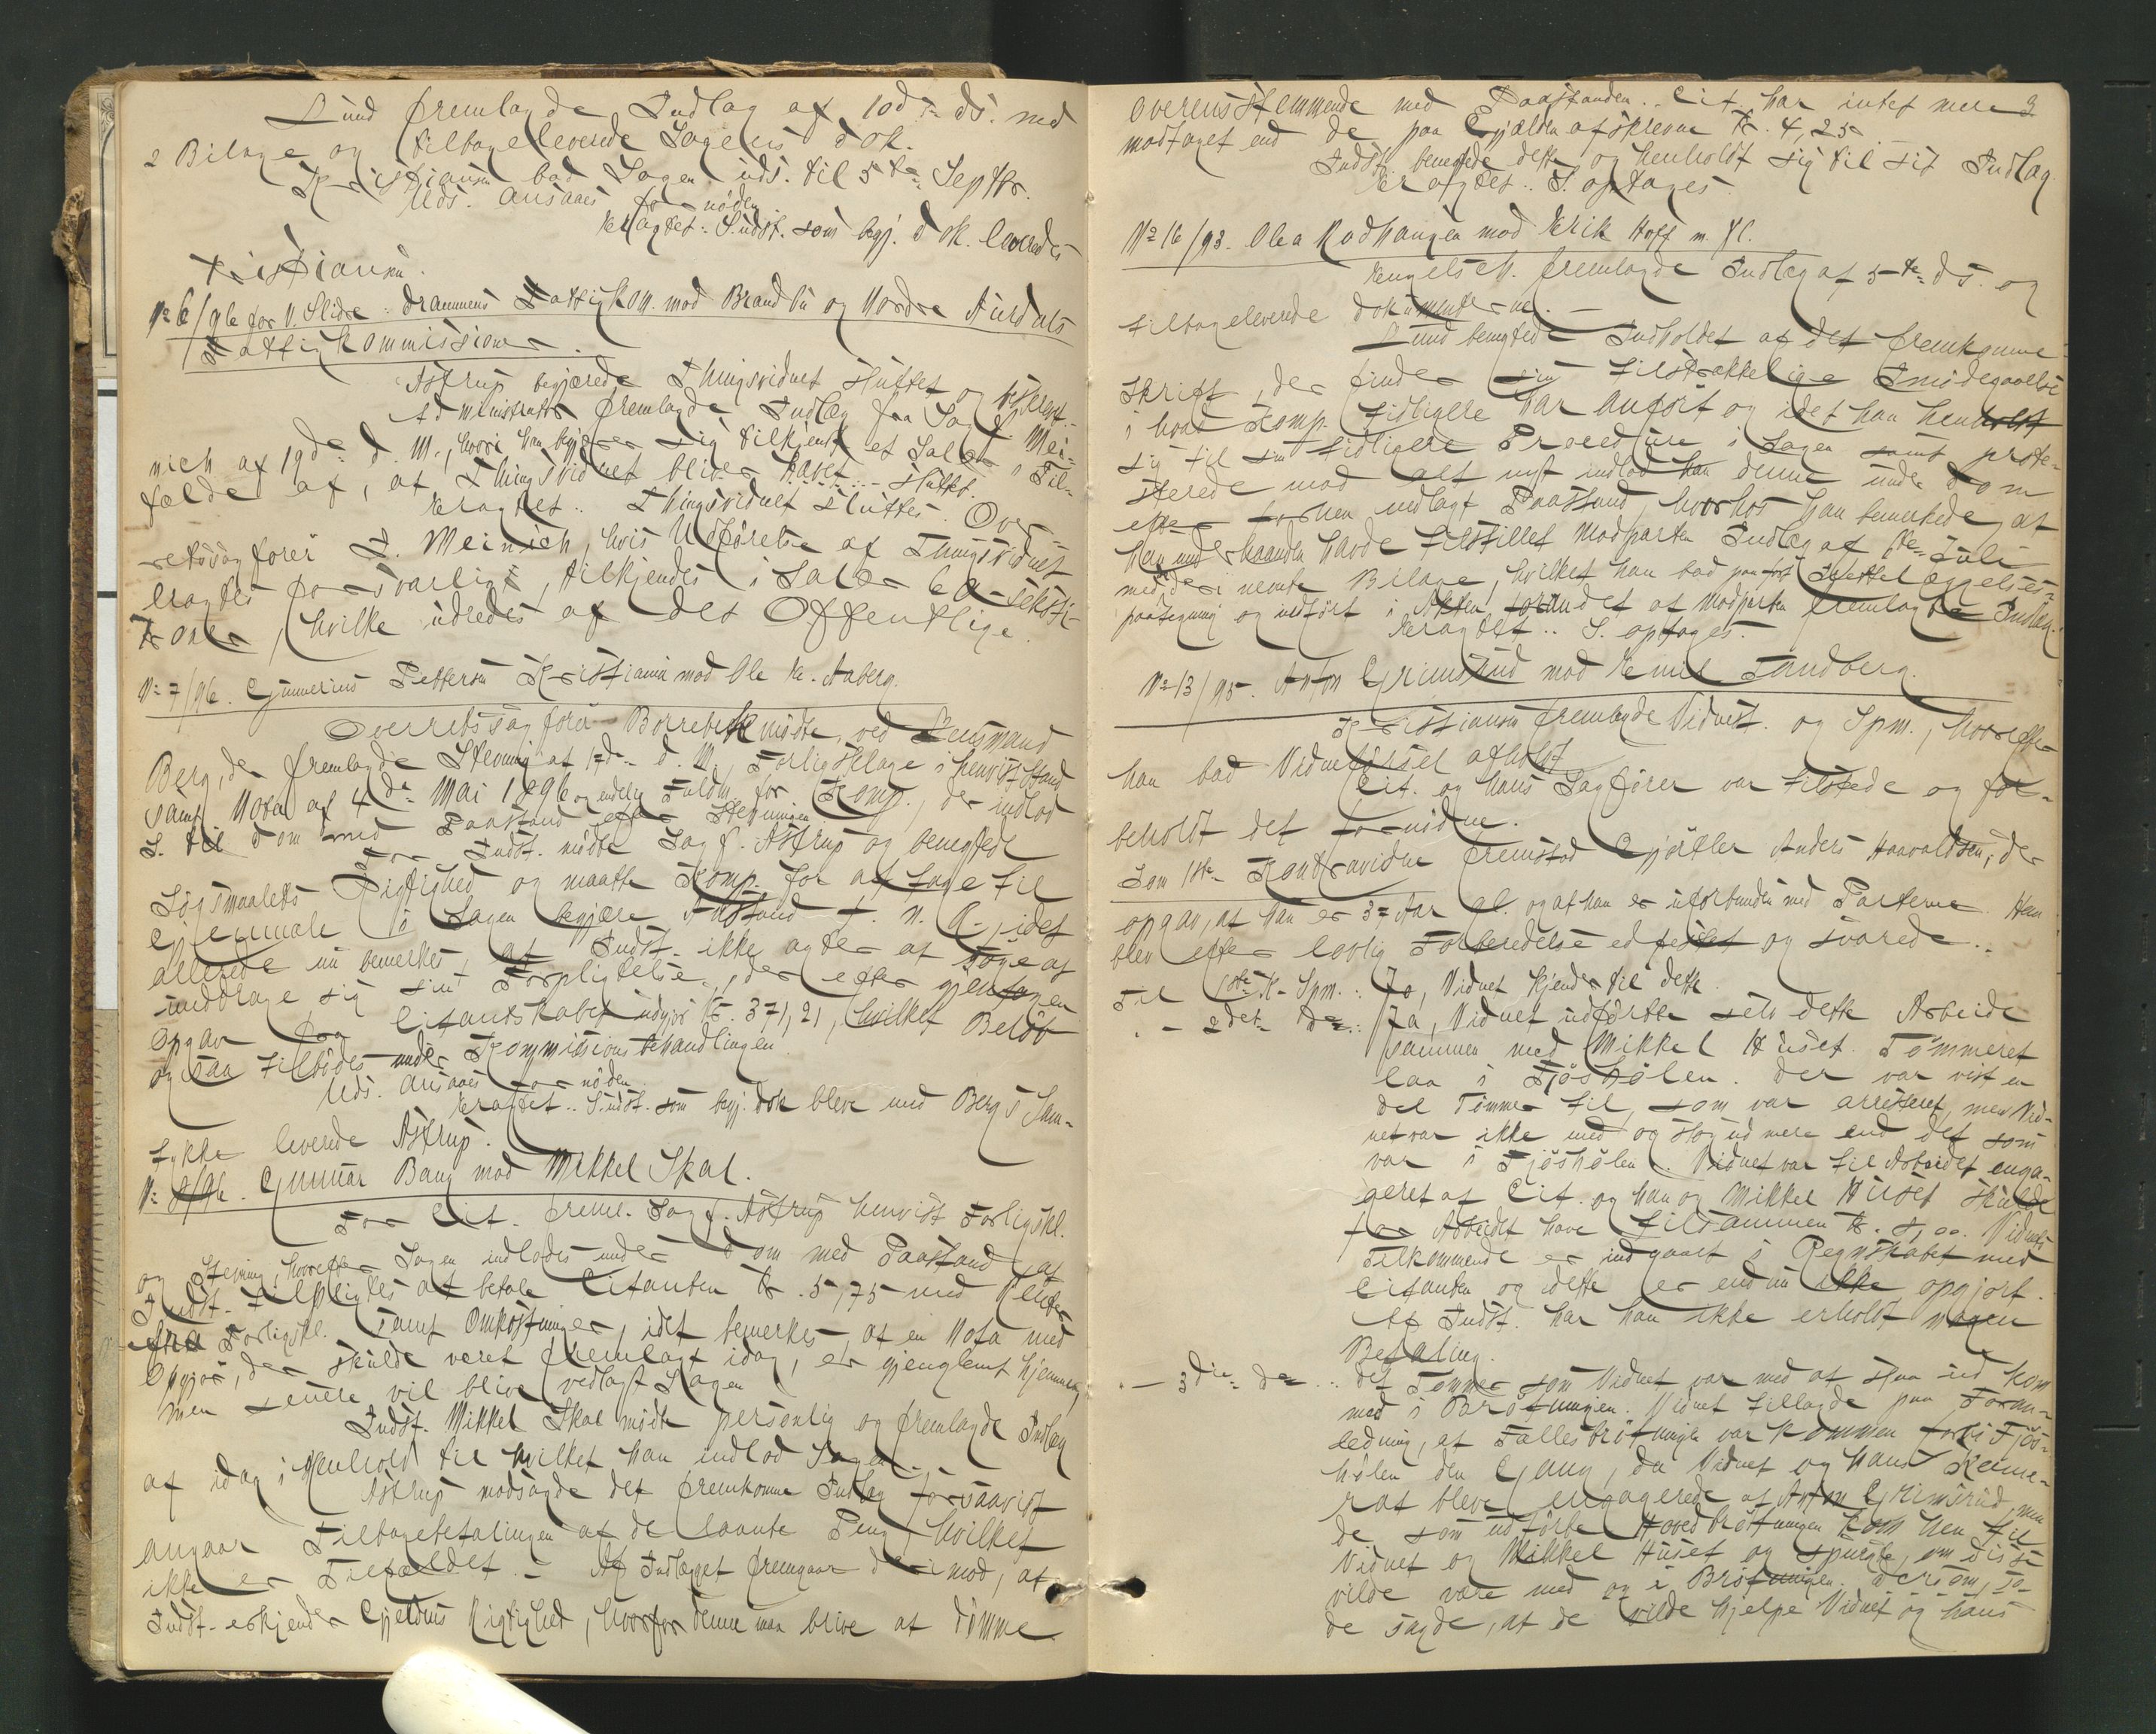 Lund fremlagde Indlæg af 10de ds. med
2 Bilage og tilbageleverede Sagens Dok.
Kristiansen bad Sagen uds. til 5te Septbr.
Uds. ansaaes for nöden.
Eragtet: S. udst. som begj. Dok. leveredes
Kristiansen.
No 6/96 for V. Slidre: Drammens Fattigkom. mod Brandbu og Nordre Aurdals
Fattigkommissioner.
Astrup begjærede Thingsvidnet sluttet og beskrevet.
Administrator fremlagde Indlæg fra Sagf. Mei-
nich af 19de d. M., hvori han begjærer sig tilkjendt et Salær i Til-
fælde af, at Thingsvidnet bliver hævet sluttet.
Eragtet: Thingsvidnet sluttes. Over-
retssagförer Meinich, hvis Udförelse af Thingsvidnet
eragtes forsvarligt, tilkjendes i Salær 60 seksti
Kroner, hvilke udredes af det Offentlige.
No 7/96. Gunnerius Pettersen Kristiania mod Ole K. Aaberg.
Overretssagförer Borrebek mödte ved Lensmand
Berg, der fremlagde Stevning af 17de d. M., Forligsklage i henvist Stand
samt Nota af 4de Mai 1896 og endelig Fuldm. for Komp., der indlod
S. til Dom med Paastand efter Stevningen.
For Indst. mödte Sagf. Astrup og benegtede
Sögsmaalets Rigtighed og maatte Komp. for at tage til
Gjenmæle i Sagen begjære Anstand t. n. R., idet
allerede nu bemerkes, at Indst. ikke agter at söge at
unddrage sig sin Forpligtelse, der efter gjentagen
Opgav fra Citantskabet udgjör Kr. 371,21, hvilket Belöb
ogsaa tilbödes under Kommissionsbehandlingen.
Uds. ansaaes for nöden.
Eragtet: S. udst. som begj. Dok bleve med Bergs Sam-
tykke leverede Astrup.
No 8/96. Gunnar Bang mod Mikkel Skal.
For Cit. freml. Sagf. Astrup henvist Forligskl.
og Stevning, hvorefter Sagen indlodes under Dom med Paastand at
Indst. tilpligtes at betale Citanten Kr. 5,75 med Renter
fra Forligskl. samt Omkostninger, idet bemerkes, at en Nota med
Opgjör, der skulde været fremlagt idag, er gjenglemt hjemme
men senere vil blive vedlagt Sagen
Indst. Mikkel Skal mödte personlig og fremlagde Indlæg
af idag i Henhold til hvilket han indlod Sagen.
Astrup modsagde det fremkomne Indlæg forsaavidt
angaar Tilbagebetalingen af de laante Penge, hvilket
ikke er Tilfældet. - Af Indlægget fremgaar derimod, at
Indst. erkjender Gjeldens Rigtighed, hvorfor denne maa blive at dömme
overensstemmende med Paastanden. Cit. har intet mere
modtaget end de paa Gjælden afskrevne Kr. 4,25
Indst. benegtede dette og henholdt sig til sit Indlæg
Eragtet: S. optages.
No 16/93. Olea Rødhaugen mod Erik Hoff m. fl.
Engelsch. fremlagde Indlæg af 5te ds. og
tilbageleverede Dokumenterne.
Lund benegtede Indholdet af det fremkomne
Skrift, der finder sin tilstrækkelige Imødegaaelse
i hvad Komp. tidligere har anfört og idet han henholdt
sig til sin tidligere Procedure i Sagen samt prote-
sterede mod alt nyt indlod han denne under Dom
efter forhen nedlagt Paastand, hvorhos han bemerkede, at
han underhaanden havde tilstillet Modparten Indlæg af 1ste Juli
med deri nevnte Bilage, hvilket han bad paaført Irettelæggelses-
paategning og indfört i Akten forinden af Modparten fremlagte Indlæg.
Eragtet: S. optages.
No 13/95. Anton Grimsrud mod Emil Sandberg.
Kristiansen fremlagde Vidnest. og Spm., hvorefter
han bad Vidneførsel afholdt
Cit. og hans Sagförer var tilstede og for-
beholdt det fornödne.
Som 1ste Kontravidne fremstod Gjörtler Anders Haavaldsen, der
opgav, at han er 37 Aar gl. og at han er uforbunden med Parterne. Han
blev efter lovlig Forberedelse edfestet og svarede:
Til 1ste K. Spm.: Ja, Vidnet kjender til dette
" - 2det do: Ja, Vidnet udförte selv dette Arbeide
sammen med Mikkel Huset. Tömmeret
laa i Fjöshölen. Der var vist en
del Tömmer til, som var arresteret, men Vid-
net var ikke med og slog ud mere end det som
var i Fjöshölen. Vidnet var til Arbeidet enga-
geret af Cit. og han og Mikkel Huset skulde
for Arbeidet have tilsammen Kr. 8,00. Vidnets
Tilkommende er indgaaet i Regnskabet med
Citanten og dette er endnu ikke opgjort.
Af Indst. har han ikke erholdt nogen
Betaling.
" - 3die do: Det Tömmer som Vidnet var med at slaa ud kom
med i Brötningen. Vidnet tillagde paa Foran-
ledning, at Fællesbrötningen var kommen forbi Fjös-
hölen den Gang, da Vidnet og hans Kame-
rat bleve engagerede af Anton Grimsrud, men
de som udförte Hovedbrötningen kom hen til
Vidnet og Mikkel Huset og spurgte, om disse
vilde være med og i Brötningen dersom
de sagde, at de vilde hjelpe Vidnet og hans